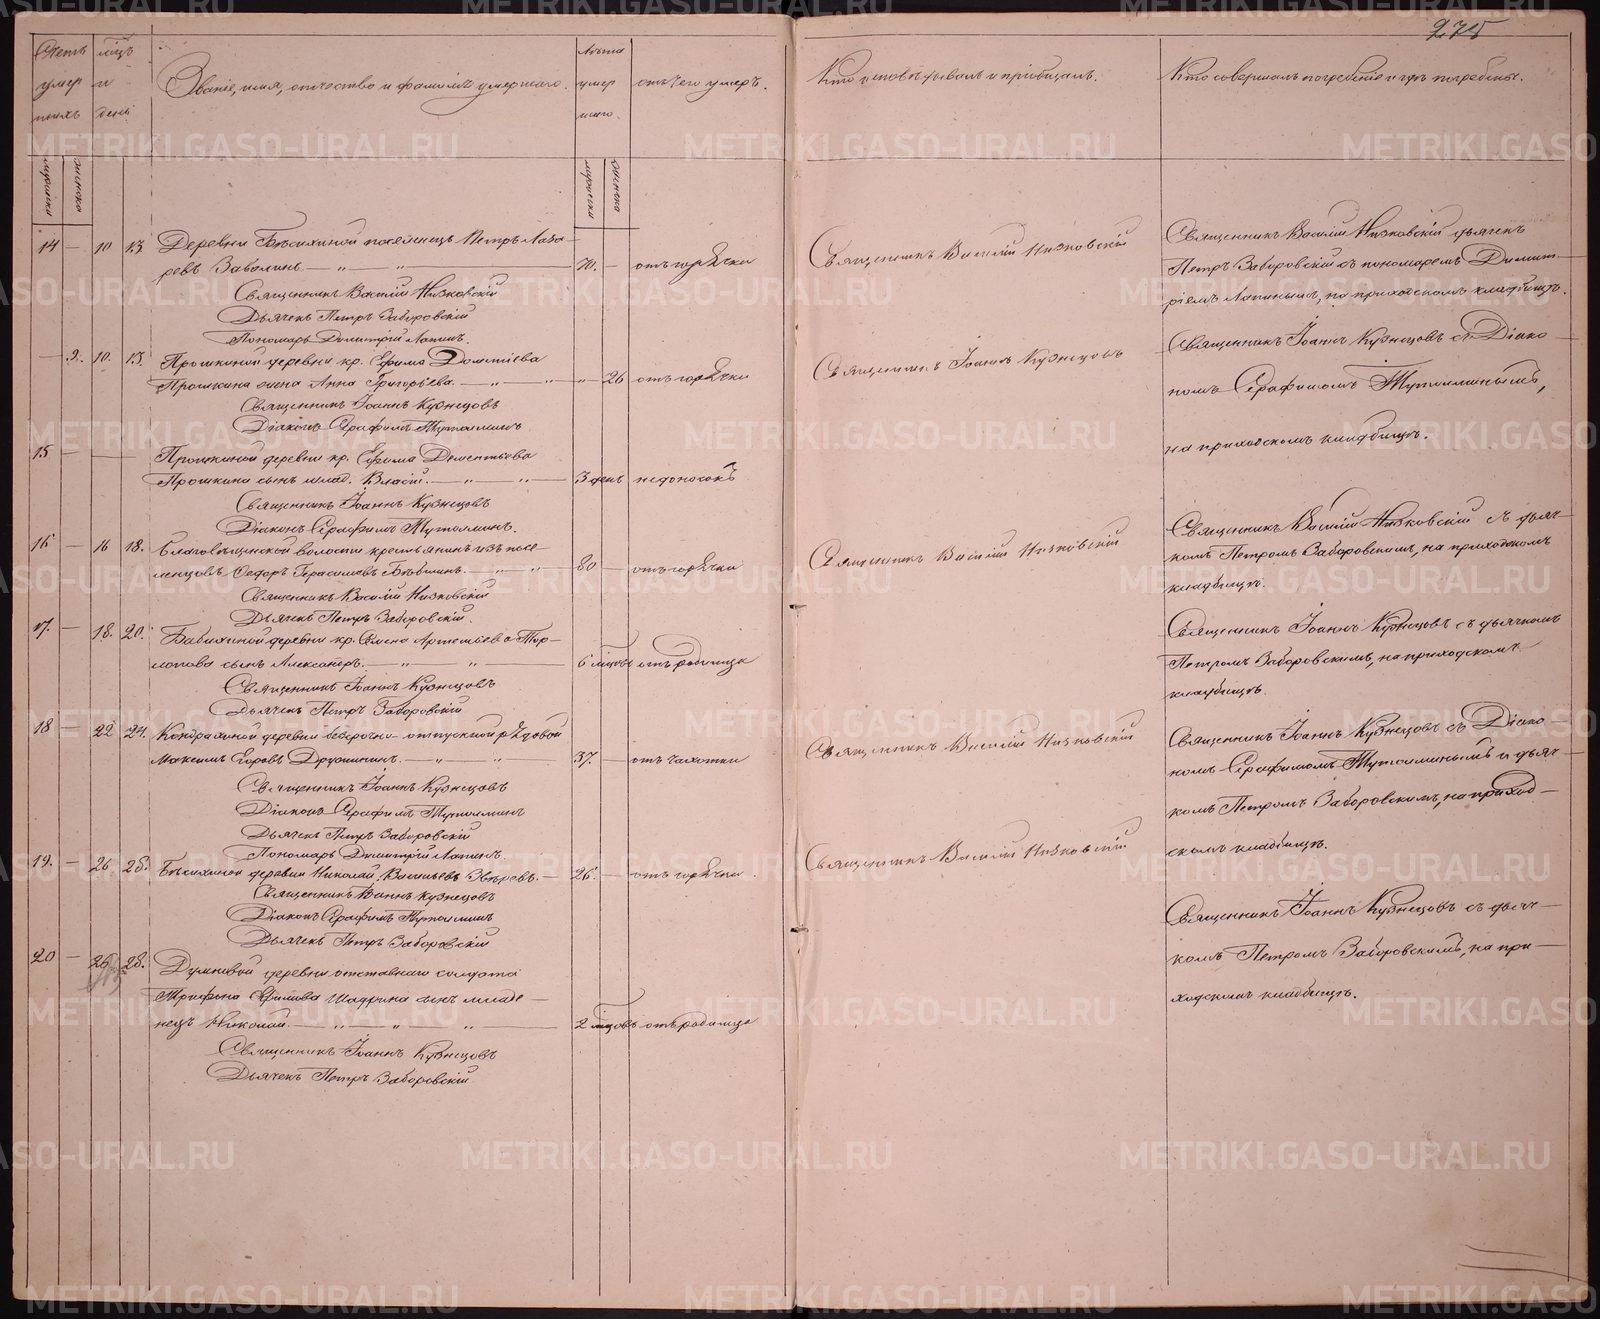 275
Счетъ умер шихъ
мѣцъ и день
Званіе, имя, отчество и фамилія умершаго.
Лѣта умер шаго.
отъ чего умеръ.
Кто исповѣдывалъ и пріобщалъ.
Кто совершалъ погребеніе и гдѣ погребены.
мужеска
женска
мужеска
женска
14 — 10 13 Деревни посѣленецъ Петръ Лаза-
ревъ Заволинъ. — „ — „ — 70. — отъ горячки
Священникъ Василій Низковскій
Священникъ Василій Низковскій дьячекъ
Петръ Заборовскій съ пономаремъ Димит-
ріемъ Лапинымъ, на приходскомъ кладбищѣ.
Священникъ Василій Низковскій
Дьячекъ Петръ Заборовскій
Пономарь Димитрій Лапинъ.
— 9. 10. 13. Прошкиной деревни кр. Ефима Дементіева
Прошкина жена Анна Григорьева. — „ — „ — „ — 26 отъ горячки
Священникъ Іоаннъ Кузнецовъ
Священникъ Іоаннъ Кузнецовъ съ Діако-
номъ Серафимомъ Тутолминымъ,
на приходскомъ кладбищѣ.
Священникъ Іоаннъ Кузнецовъ
Діаконъ Серафимъ Тутолминъ
15 — Прошкиной деревни кр. Ефима Дементьева
Прошкина сынъ млад. Власій. — „ — „ — 3 день недоносокъ
Священникъ Іоаннъ Кузнецовъ
Діаконъ Серафимъ Тутолминъ.
16 — 16 18. Благовѣщенской волости крестьянинъ изъ посе-
ленцовъ Ѳедоръ Герасимовъ — „ — „ 80 — отъ горячки
Священникъ Василій Низковскій
Священникъ Василій Низковскій съ дьяч-
комъ Петромъ Заборовскимъ, на приходскомъ
кладбищѣ.
Священникъ Василій Низковскій
Дьячекъ Петръ Заборовскій.
17. — 18. 20. Бабихиной деревни кр. Семена Артемьева
сынъ Александръ. — „ — „ — 6 мѣцовъ отъ родимца
Священникъ Іоаннъ Кузнецовъ съ дьячкомъ
Петромъ Заборовскимъ, на приходскомъ
кладбищѣ.
Священникъ Іоаннъ Кузнецовъ
Дьячекъ Петръ Заборовскій
18 — 22 24. Кондрахиной деревни безсрочно-отпускной рядовой
Максимъ Егоровъ Дружининъ. — „ — „ — 37. — отъ чахотки
Священникъ Василій Низковскій
Священникъ Іоаннъ Кузнецовъ съ Діако-
номъ Серафимомъ Тутолминымъ и дьяч-
комъ Петромъ Заборовскимъ, на приход-
скомъ кладбищѣ.
Священникъ Іоаннъ Кузнецовъ
Діаконъ Серафимъ Тутолминъ
Дьячекъ Петръ Заборовскій
Пономарь Димитрій Лапинъ.
19. — 26 28. деревни Николай Васильевъ Звѣревъ. — 26. — отъ горячки.
Священникъ Василій Низковскій
Священникъ Іоаннъ Кузнецовъ съ дьяч-
комъ Петромъ Заборовскимъ, на при-
ходскомъ кладбищѣ.
Священникъ Іоаннъ Кузнецовъ
Діаконъ Серафимъ Тутолминъ
Дьячекъ Петръ Заборовскій
20 — 26 28. деревни отставнаго солдата
Трифона Ефимова Шадрина сынъ младе-
нецъ Николай. — „ — „ — „ — 2 мѣцовъ отъ родимца
Священникъ Іоаннъ Кузнецовъ
Дьячекъ Петръ Заборовскій
METRIKI.GASO-URAL.RU